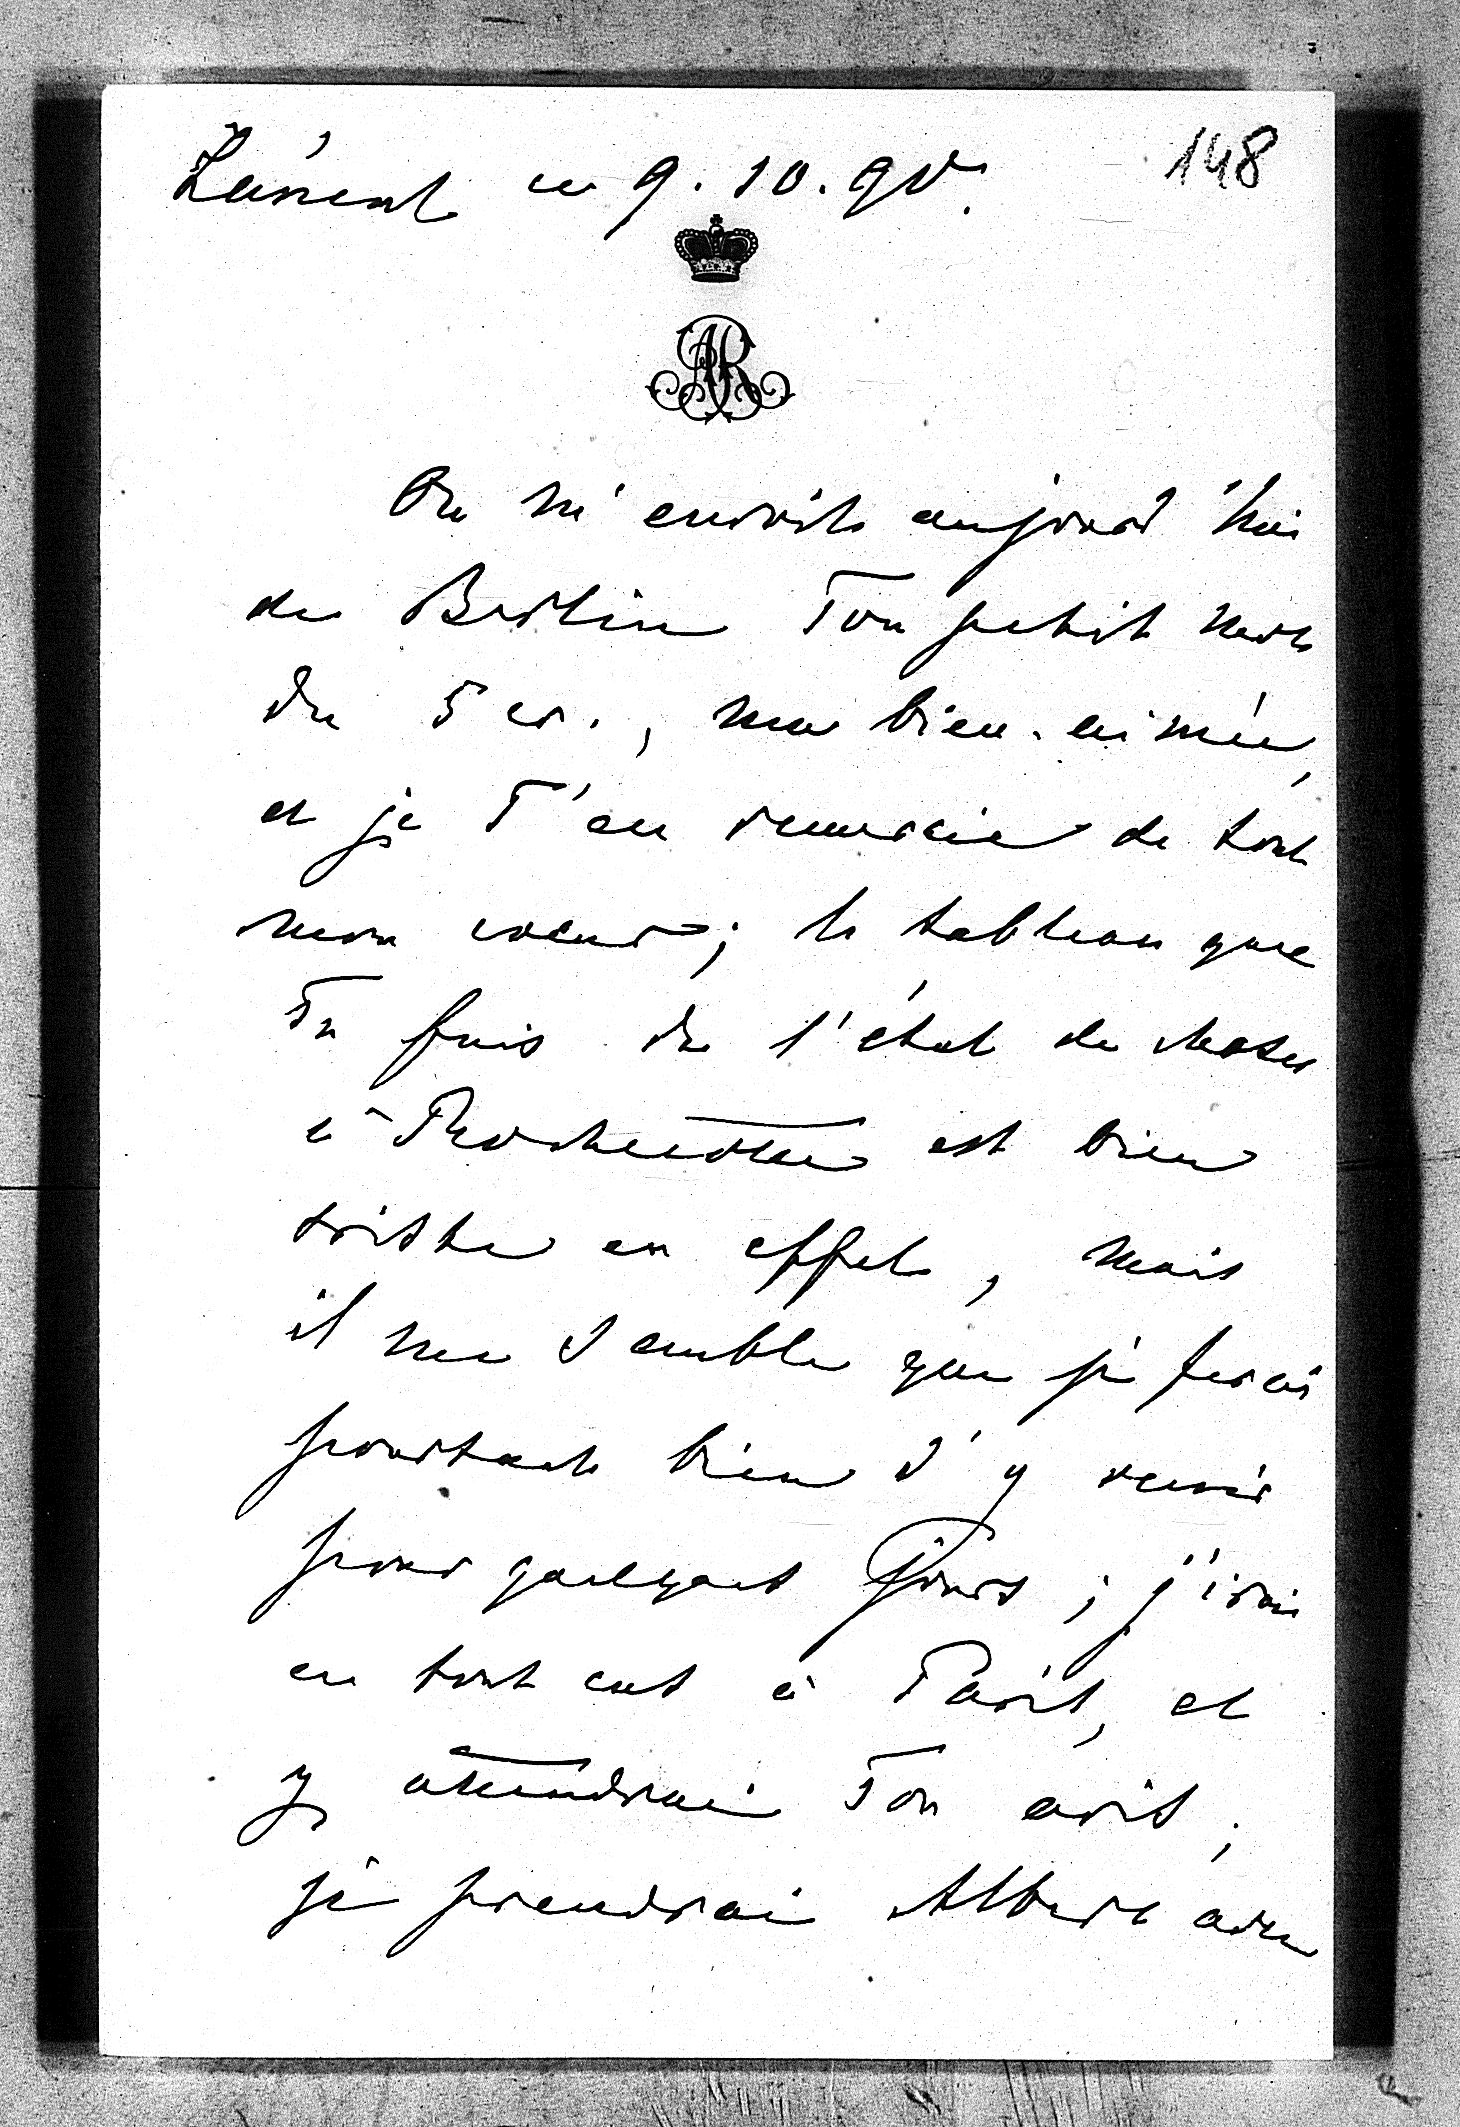 Łańcut ce 9.10.90.
148
AR
On m'envoie aujourd'hui
de Berlin Ton petit mot
du 5 cr., ma bien-aimée,
et je T'en remercie de tout
mon coeur; le tableau que
Tu fais de l'état de choses
à Rochecotte est bien
triste en effet, mais
il me semble que je ferai
pourtant bien d'y venir
pour quelques jours; j'irai
en tout cas à Paris, et
y attendrai Ton avis;
je prendrai Albert avec